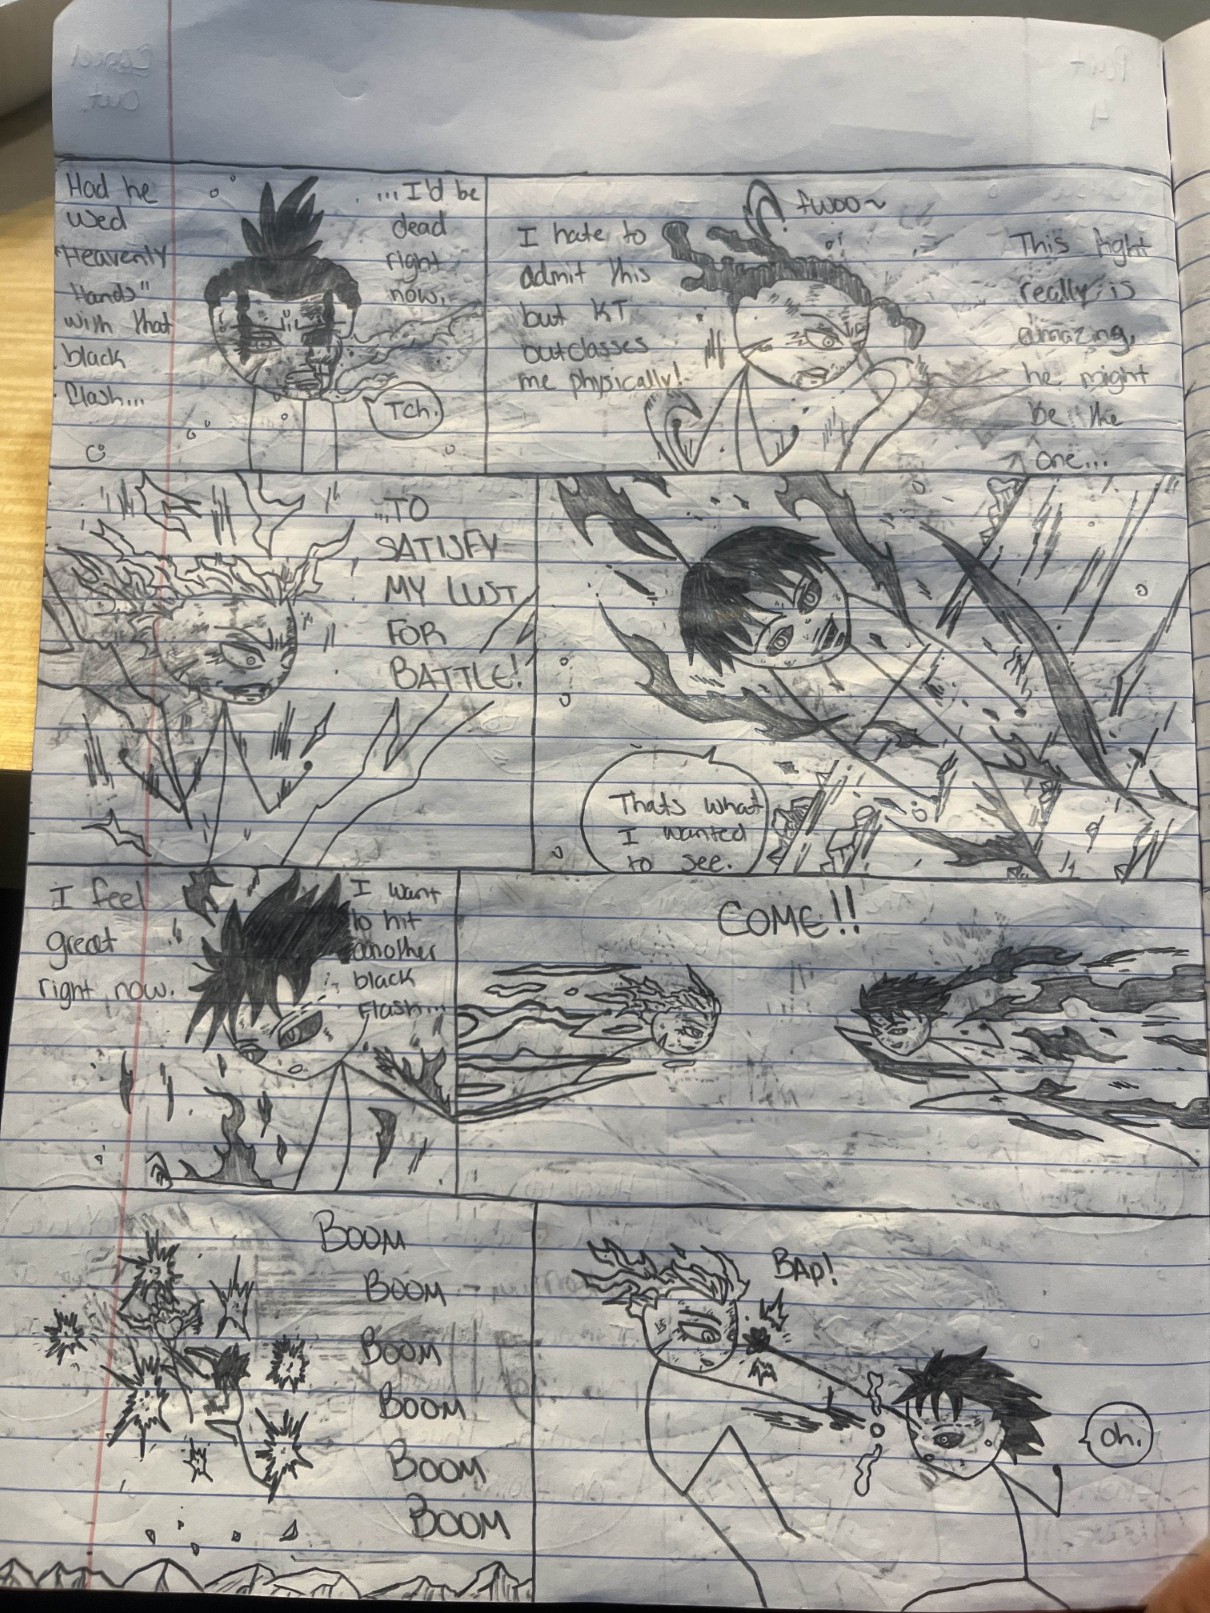 Had he
used
"Heavenly
Hands"
with that
black
flash...
...I'd be
dead
right
now.
Tch.
I hate to
admit this
but KT
outclasses
me physically!
fwoo~
This fight
really is
amazing,
he might
be the
one...
...TO
SATISFY
MY LUST
FOR
BATTLE!
Thats what
I wanted
to see.
I feel
great
right now.
I want
to hit
another
black
flash...
COME!!
BOOM
BOOM
BOOM
BOOM
BOOM
BOOM
BAP!
oh.